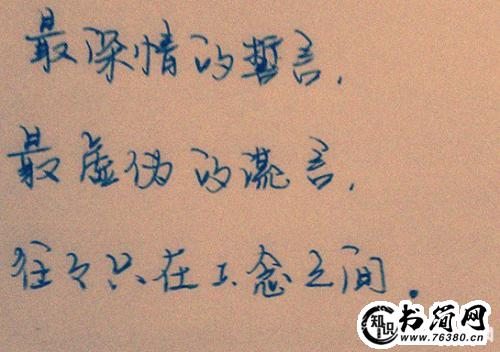 最深情的誓言,
最虚伪的谎言,
往々只在一念之间.
知识 书简网
www.76380.cn